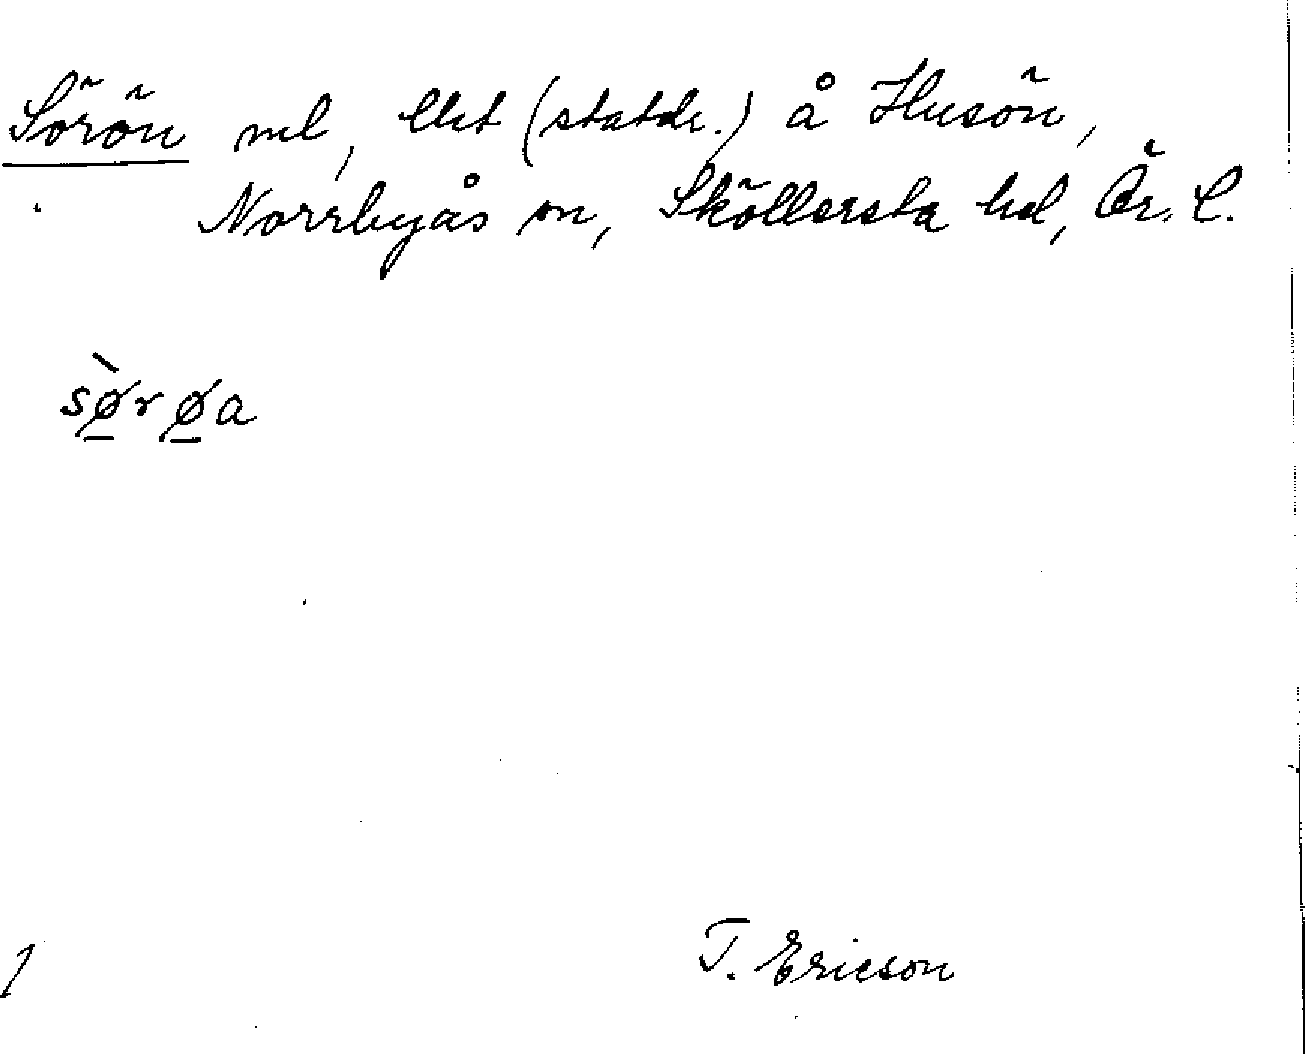 Sörön nel, lht (statdr.) å Husön,
Norrbyås sn, Sköllersta hd, Ör. L.
sø̱̀rø̱a
T. Ericson
1